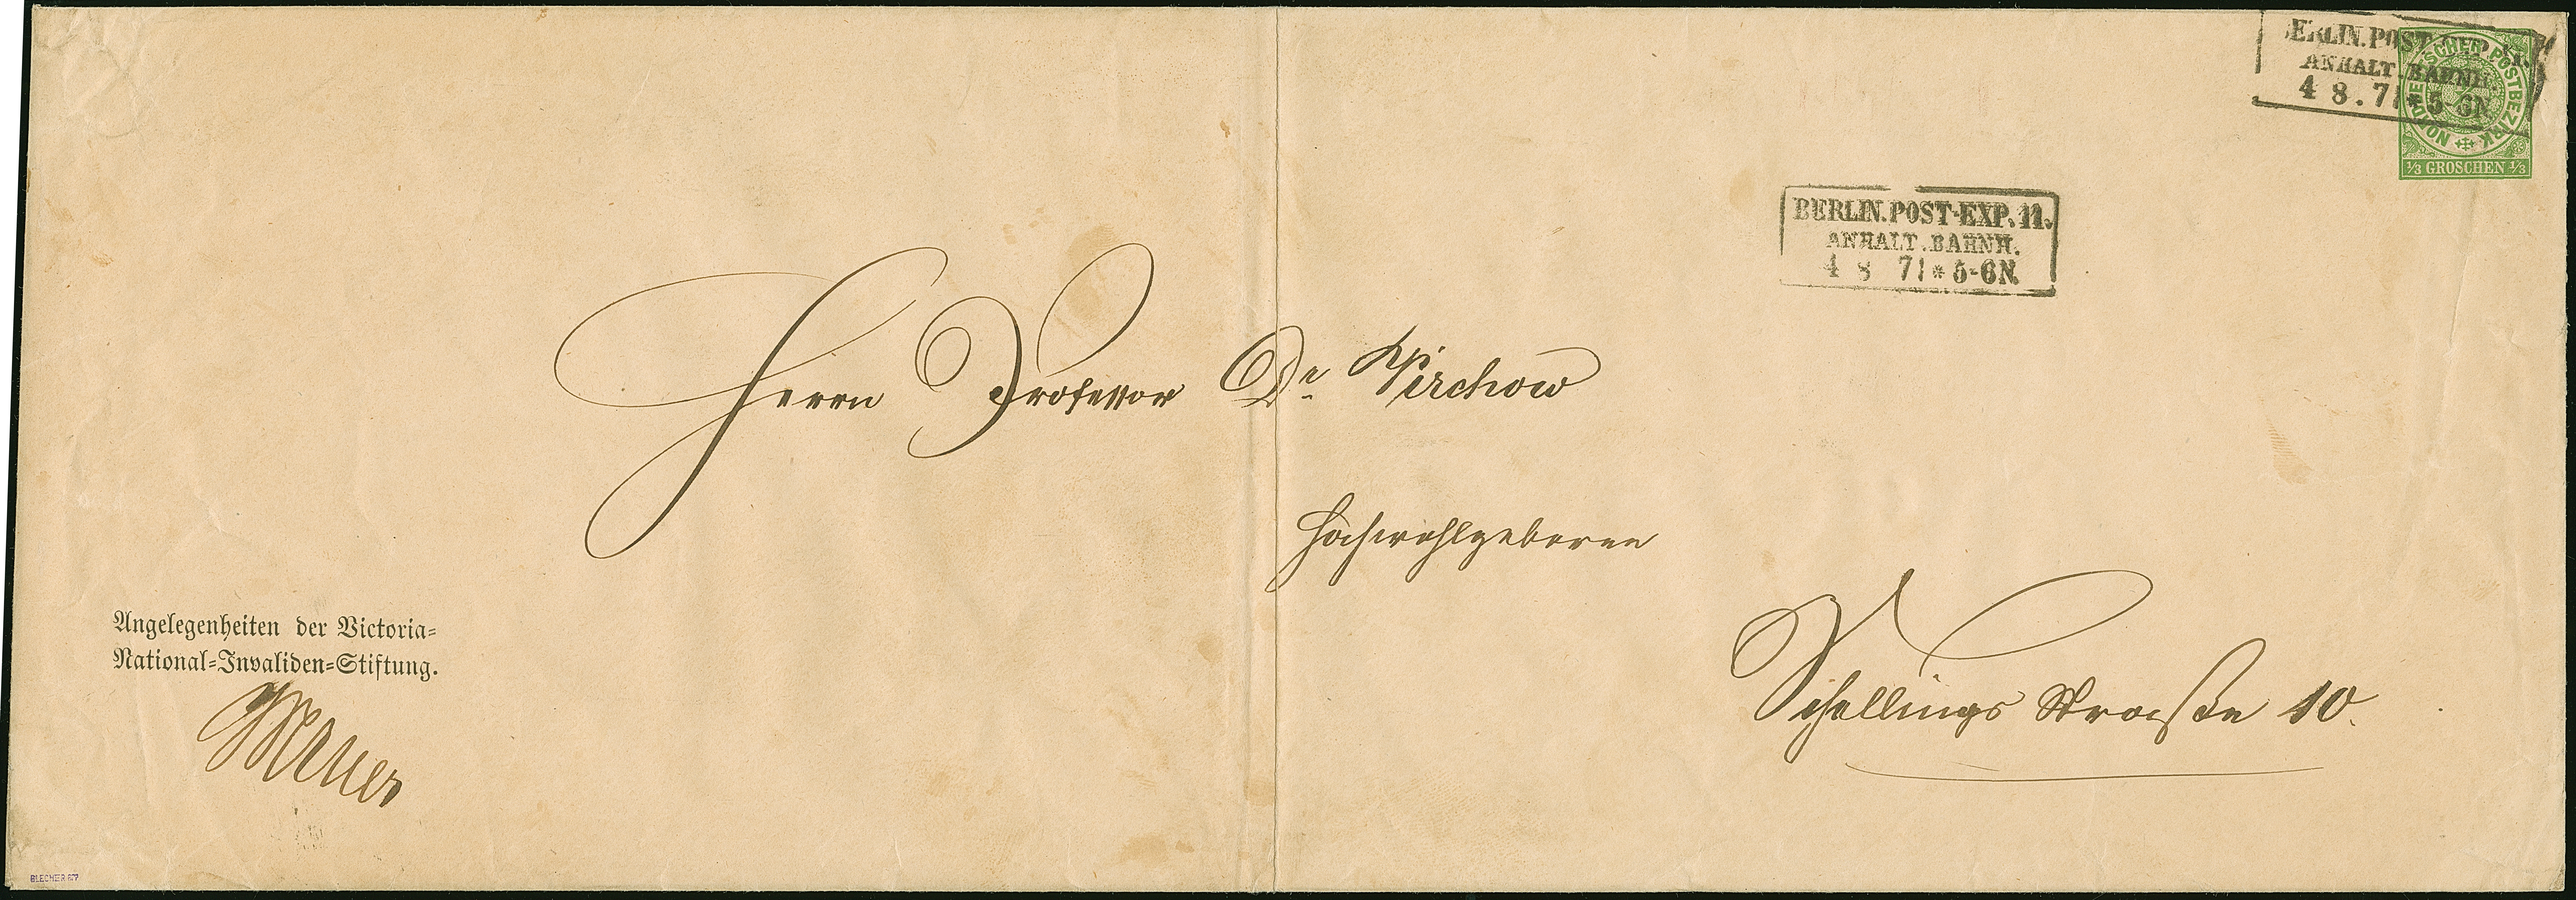 BERLIN.POST-EXP. 11.
ANHALT.BAHNH.
4 8.71 * 5-6N.
NORDDEUTSCHER POSTBEZIRK
1/3 GROSCHEN 1/3
BERLIN.POST-EXP. 11.
ANHALT.BAHNH.
4 8 71 * 5-6N.
Herrn Professor Dr Virchow
Hochwohlgeboren
Angelegenheiten der Victoria-
National-Invaliden-Stiftung.
Schellings Straße 10.
BLECHER